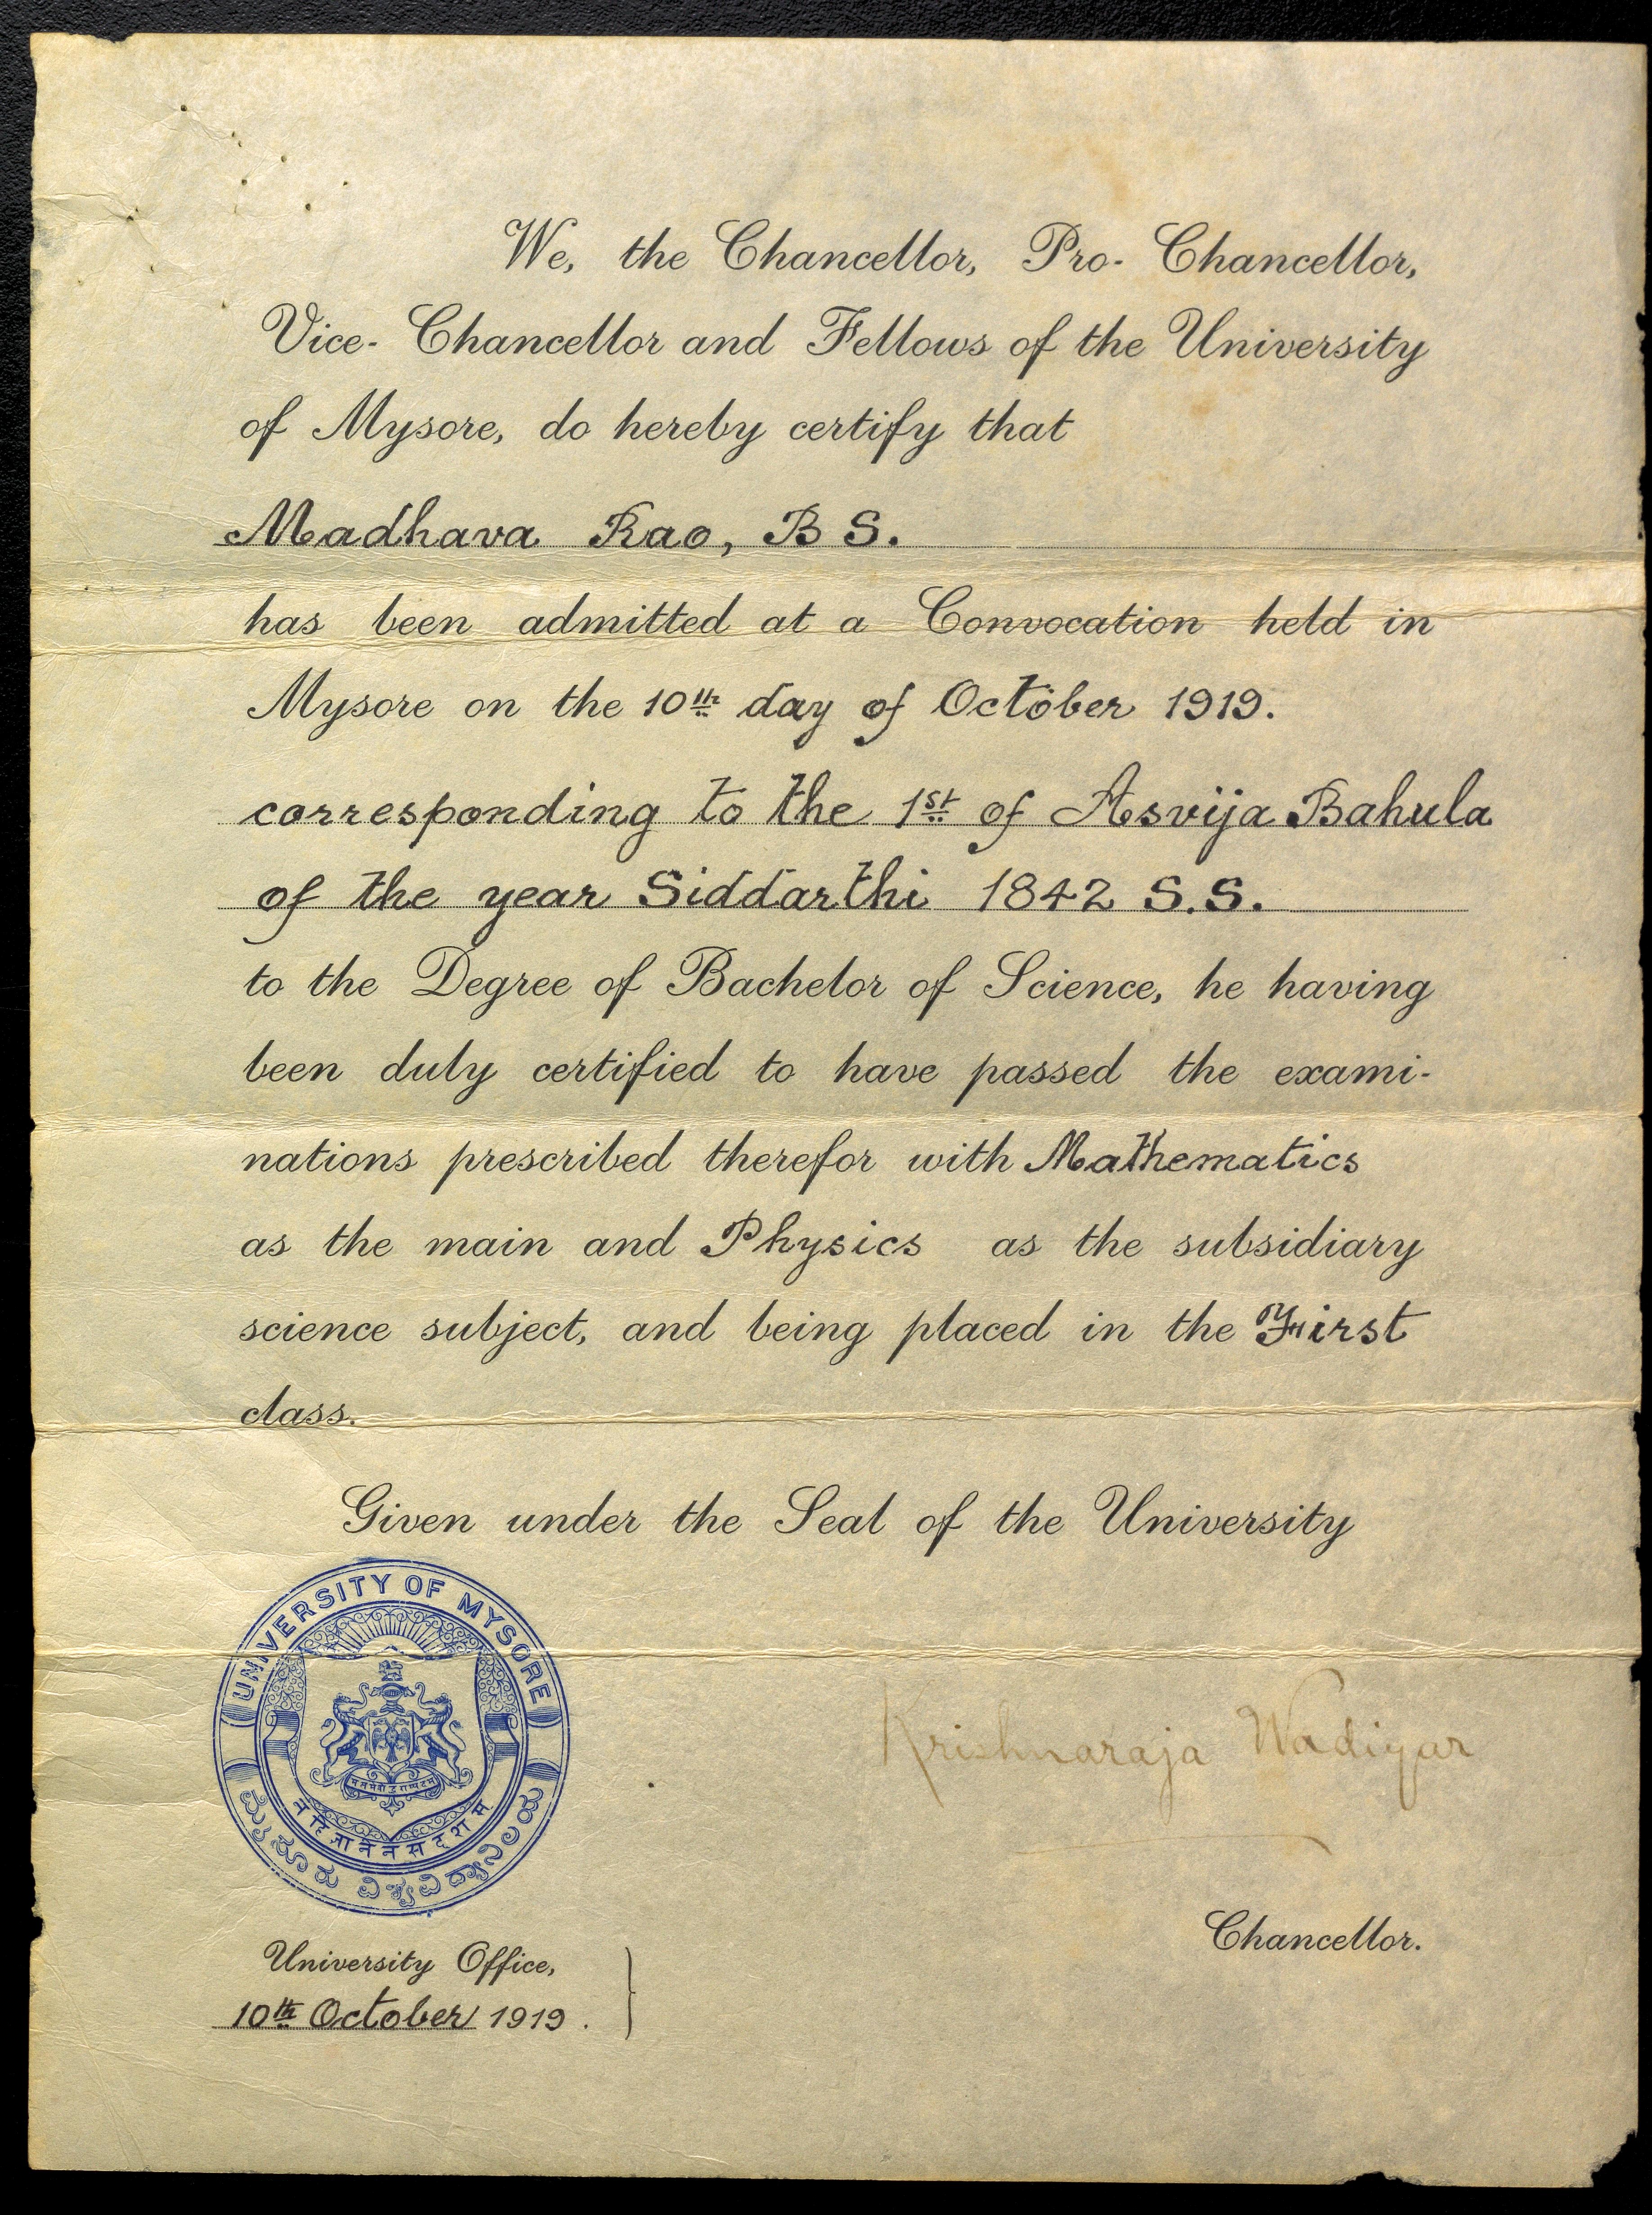 We, the Chancellor, Pro-Chancellor,
Vice-Chancellor and Fellows of the University
of Mysore, do hereby certify that
Madhava Rao, B S.
has been admitted at a Convocation held in
Mysore on the 10th day of October 1919.
corresponding to the 1st of Asvija Bahula
of the year Siddarthi 1842 S.S.
to the Degree of Bachelor of Science, he having
been duly certified to have passed the exami-
nations prescribed therefor with Mathematics
as the main and Physics as the subsidiary
science subject, and being placed in the First
class.
Given under the Seal of the University
UNIVERSITY OF MYSORE
न हि ज्ञानेन सदृशम्
ಮೈಸೂರು ವಿಶ್ವವಿದ್ಯಾನಿಲಯ
Krishnaraja Wadiyar
Chancellor.
University Office,
10th October 1919.